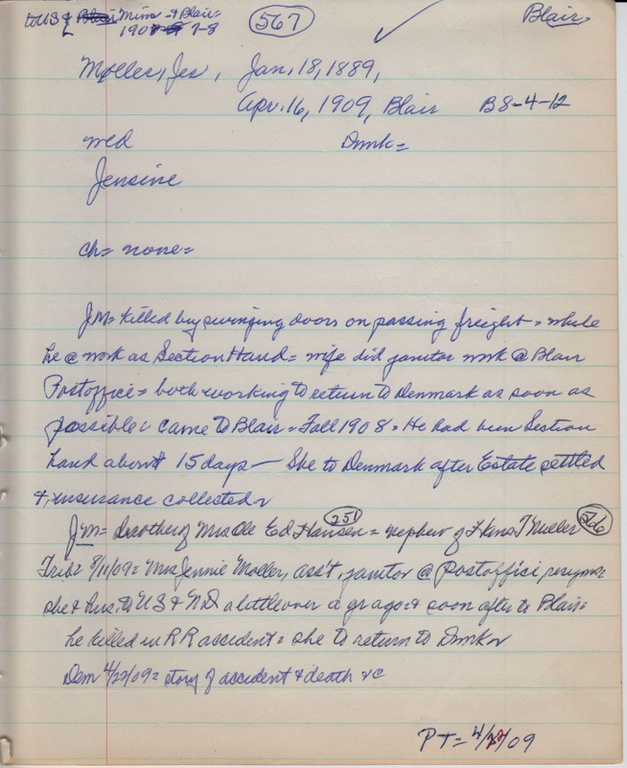 to US & Blair Minn - & Blair=
1907-8
567
Blair
Moller, Jes, Jan. 18, 1889,
Apr. 16, 1909, Blair B 8-4-12
wed Dmk=
Jensine
ch= none=
JM= killed by swinging doors on passing freight = while
he @ work as Section Hand = wife did janitor work @ Blair
Postoffice = both working to return to Denmark as soon as
possible = came to Blair = Fall 1908 = He had been Section
hand about 15 days — She to Denmark after Estate settled
+ insurance collected
251
JM= brother of Mrs Ole Ed Hansen = nephew of Hans T Moeller 566
Trib= 8/11/09= Mrs Jennie Moller, ass't janitor @ Postoffice resigns=
she & hus. to US & a little over a yr ago = & soon after to Blair=
he killed in RR accident = she to return to Dmk
Dem 4/22/09= story of accident & death &c
PT= 4/22/09